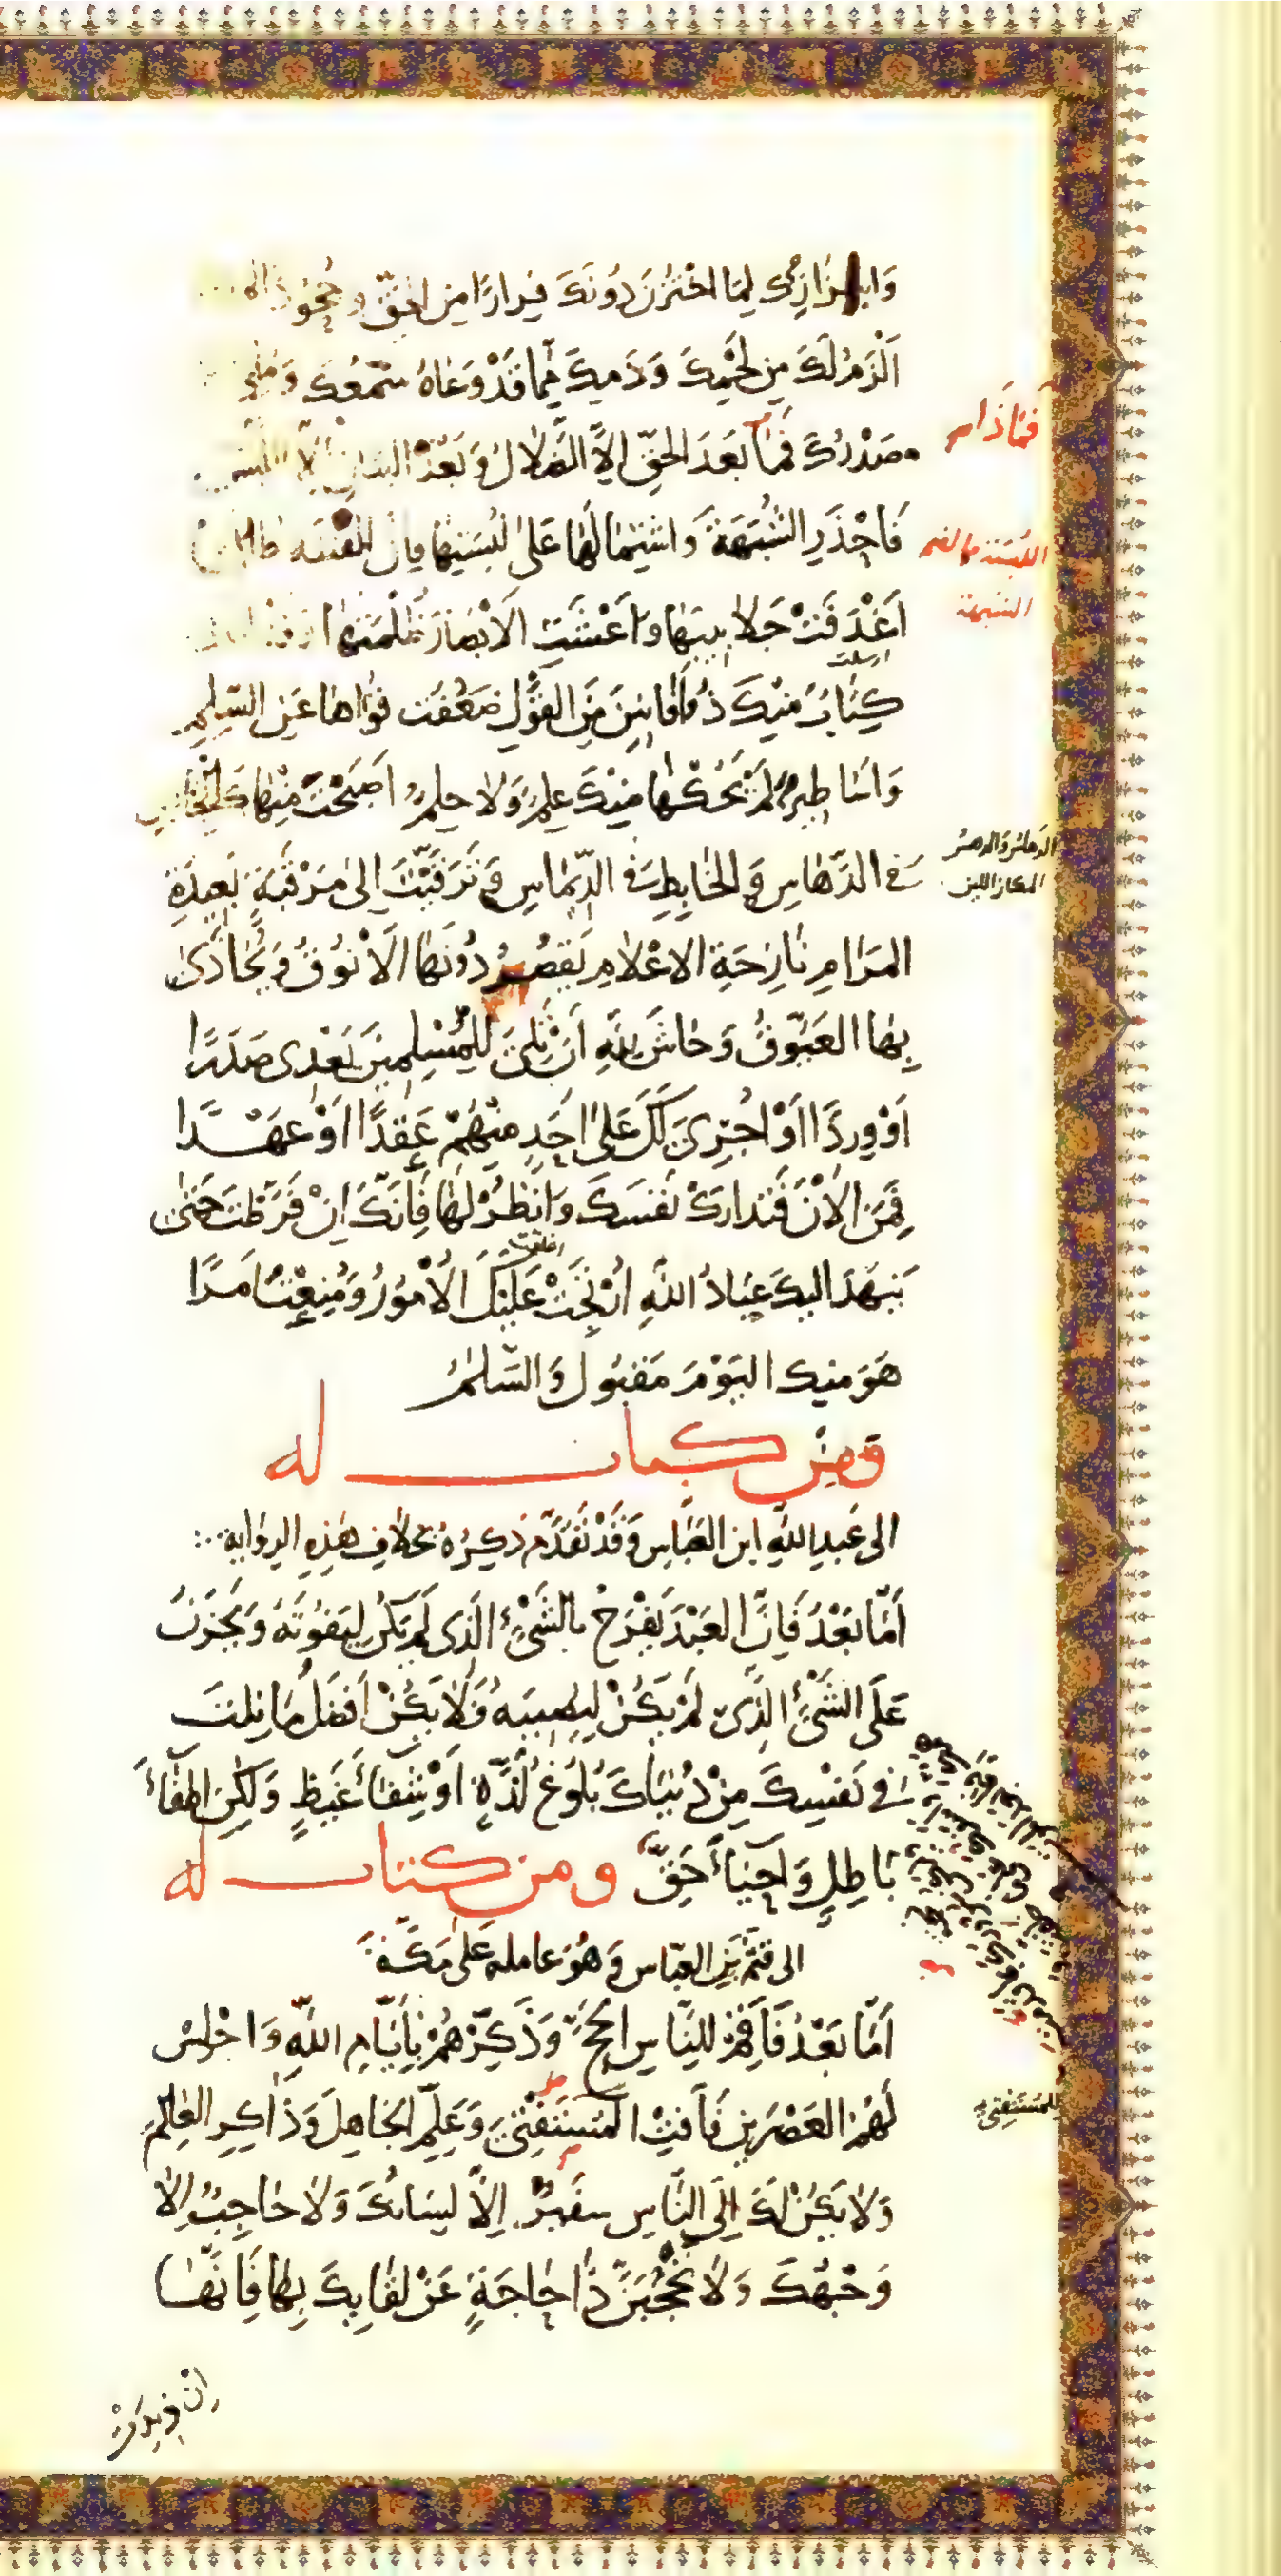 وَابْتِزَازِكَ لِمَا اخْتُزِنَ دُونَكَ فِرَارًا مِنَ الْحَقِّ وَجُحُودًا لِمَا
أَلْزَمُ لَكَ مِنْ لَحْمِكَ وَدَمِكَ مِمَّا قَدْ وَعَاهُ سَمْعُكَ وَمُلِئَ
صَدْرُكَ فَمَا بَعْدَ الْحَقِّ اِلَّا الضَّلَالُ وَبَعْدَ الْبَيَانِ اِلَّا اللَّبْسُ
فَاحْذَرِ الشُّبْهَةَ وَاشْتِمَالَهَا عَلَى لُبْسَتِهَا فَاِنَّ الْفِتْنَةَ طَالَمَا
أَغْدَفَتْ جَلَابِيبَهَا وَأَعْشَتِ الْأَبْصَارَ ظُلْمَتُهَا
ارسلت
كِتَابٌ مِنْكَ ذُو أَفَانِينَ مِنَ الْقَوْلِ ضَعُفَتْ قُوَاهَا عَنِ السِّلْمِ
وَأَسَاطِيرُ لَمْ يَحُكْهَا مِنْكَ عِلْمٌ وَلَا حِلْمٌ أَصْبَحْتَ مِنْهَا كَالْخَائِضِ
فِي الدَّهَاسِ وَالْخَابِطِ فِي الدِّيمَاسِ وَتَرَقَّيْتَ إِلَى مَرْقَبَةٍ بَعِيدَةِ
الْمَرَامِ نَازِحَةِ الْأَعْلَامِ تَقْصُرُ دُونَهَا الْأَنُوقُ وَيُحَاذَى
بِهَا الْعَيُّوقُ وَحَاشَ لِلَّهِ أَنْ تَلِيَ لِلْمُسْلِمِينَ بَعْدِي صَدَرًا
أَوْ وِرْدًا أَوْ أُجْرِيَ لَكَ عَلَى أَحَدٍ مِنْهُمْ عَقْدًا أَوْ عَهْدًا
فَمِنَ الْآنَ فَتَدَارَكْ نَفْسَكَ وَانْظُرْ لَهَا فَإِنَّكَ إِنْ فَرَّطْتَ حَتَّى
اغلقت
يَنْهَدَ إِلَيْكَ عِبَادُ اللَّهِ أُرْتِجَتْ عَلَيْكَ الْأُمُورُ وَمُنِعْتَ أَمْرًا
هُوَ مِنْكَ الْيَوْمَ مَقْبُولٌ وَالسَّلَامُ
وَمِنْ كتاب له
الى عَبْدِ اللَّهِ ابن الْعَبَّاسِ وَقَدْ تَقَدَّمَ ذِكْرُهُ بِخِلَافِ هَذِهِ الرِّوَايَةِ
أَمَّا بَعْدُ فَإِنَّ الْعَبْدَ لَيَفْرَحُ بِالشَّيْءِ الَّذِي لَمْ يَكُنْ لِيَفُوتَهُ وَيَحْزَنُ
عَلَى الشَّيْءِ الَّذِي لَمْ يَكُنْ لِيُصِيبَهُ وَلَا يَكُنْ أَفْضَلُ مَا نِلْتَ
فِي نَفْسِكَ مِنْ دُنْيَاكَ بُلُوغَ لَذَّةٍ أَوْ شِفَاءَ غَيْظٍ وَلَكِنْ إِطْفَاءَ
بَاطِلٍ وَإِحْيَاءَ حَقٍّ ومن كتاب له
الى قُثَمَ بْنِ الْعَبَّاسِ وَهُوَ عامله عَلَى مَكَّةَ
أَمَّا بَعْدُ فَأَقِمْ لِلنَّاسِ الْحَجَّ وَذَكِّرْهُمْ بِأَيَّامِ اللَّهِ وَاجْلِسْ
لَهُمُ الْعَصْرَيْنِ فَأَفْتِ الْمُسْتَفْتِيَ وَعَلِّمِ الْجَاهِلَ وَذَاكِرِ الْعَالِمَ
وَلَا يَكُنْ لَكَ إِلَى النَّاسِ سَفِيرٌ إِلَّا لِسَانُكَ وَلَا حَاجِبٌ إِلَّا
وَجْهُكَ وَلَا تَحْجُبَنَّ ذَا حَاجَةٍ عَنْ لِقَائِكَ بِهَا فَإِنَّهَا
إِنْ ذِيدَتْ
فَمَا ذَا
الشبهة
الدهاس والدهس
المكان اللين
للمستفتى